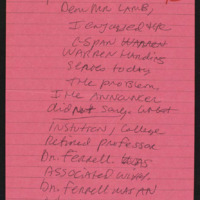 Dear Mr Lamb,
I enjoyed the
C-SPAN Warren
Warren Harding
series today
The problem.
I the announcer
did not say. what
Institution / College
Retired professor
Dr. Ferrell. was
Associated with.
Dr. Ferrell was an